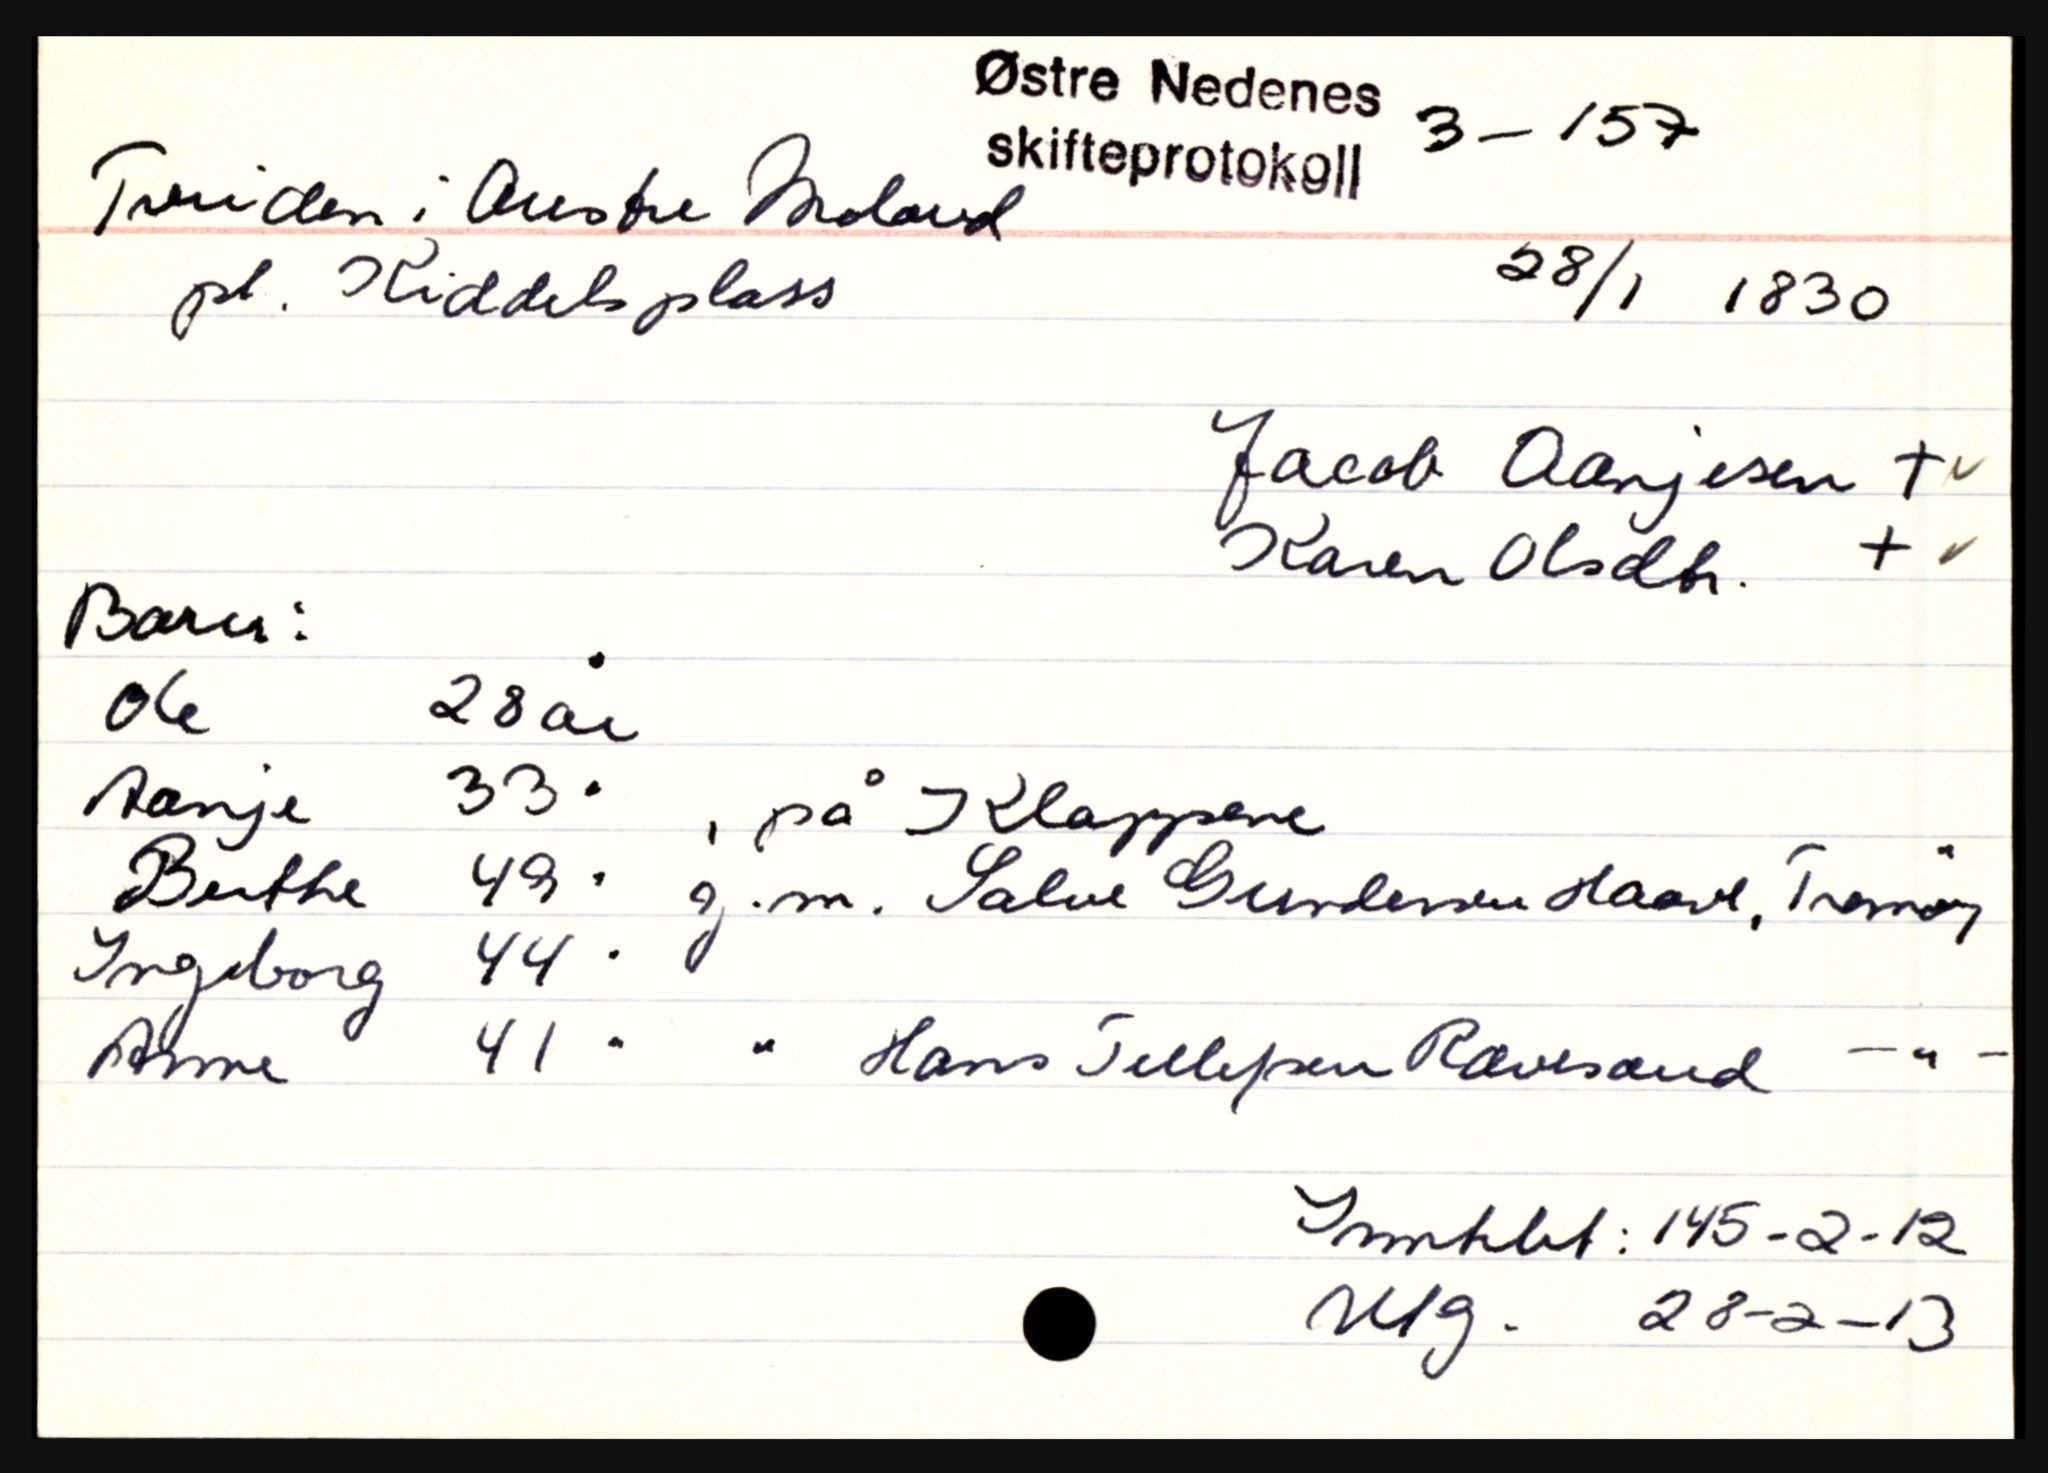 Østre Nedenes
skifteprotokoll 3 - 157
Tveiden i Austre Moland
pl. Kiddelsplass
28/1 1830
Jacob Aanjesen + ✓
Karen Olsdtr. + ✓
Barn:
Ole 28 år
Aanje 33 " , på Klappene
Berthe 49 " g.m. Salve Gundersen Haave, Tromøy
Ingeborg 44 "
Anne 41 " " Hans Tellefsen Rævesand - " -
Inntekt: 145-2-12
Utg. 28-2-13